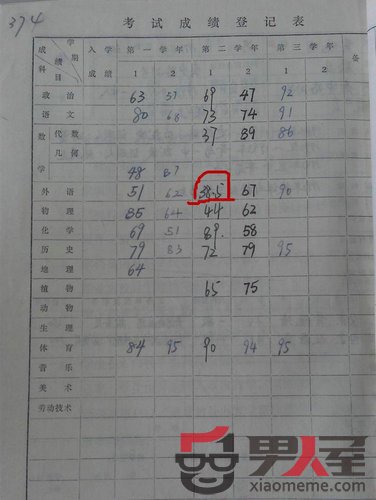 374
考试成绩登记表
学期 成绩 科目 入学成绩 第一学年 第二学年 第三学年 备
1 2 1 2 1 2
政治 63 57 69 47 92
语文 80 68 73 74 91
数学 代数 37 89 86
几何
48 87
外语 51 62 38.5 67 90
物理 85 64 44 62
化学 69 51 89. 58
历史 79 83 72 79 95
地理 64
植物 65 75
动物
生理
体育 84 95 90 94 95
音乐
美术
劳动技术
男人窝
xiaomeme.com